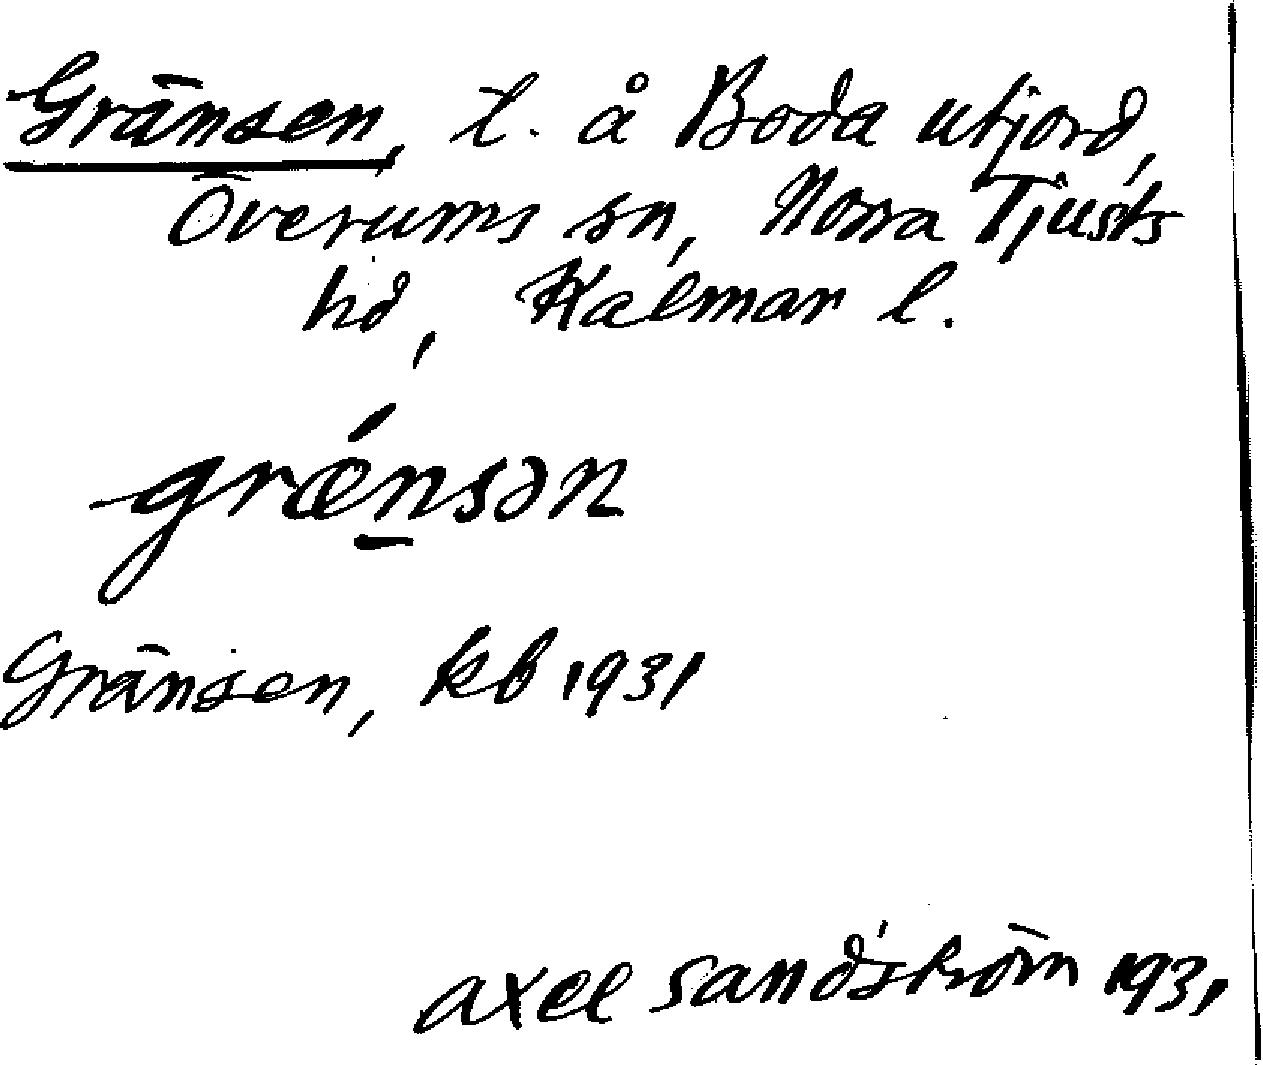 Gränsen, t. å Boda utjord,
Överums sn, Norra Tjusts
hd, Kalmar l.
grǽn̲sən
Gränsen, kb 1931
Axel Sandström 1931